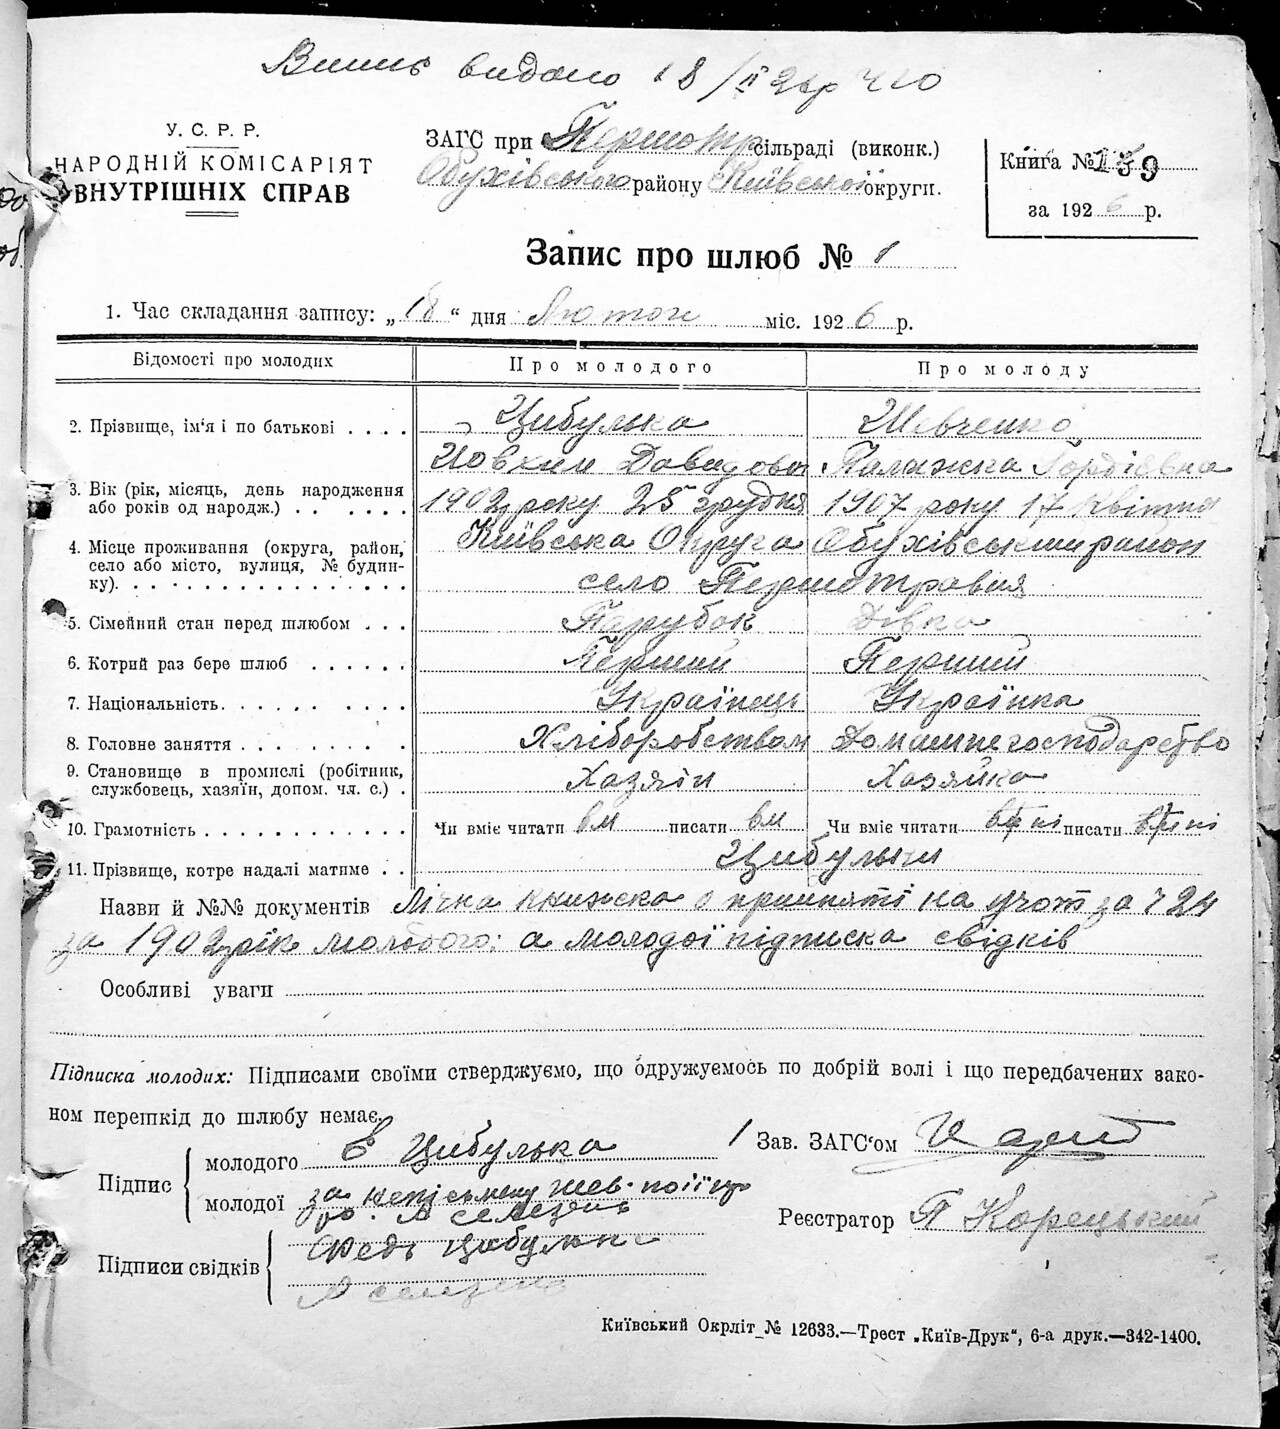 Випис видано 18/II 26р Ч 10
У. С. Р. Р.
НАРОДНІЙ КОМІСАРІЯТ
ВНУТРІШНІХ СПРАВ
ЗАГС при Першотр сільраді (виконк.)
Обухівського району Київської округи.
Книга №
за 1926 р.
Запис про шлюб № 1
1. Час складання запису: „18“ дня Лютого міс. 1926 р.
Відомості про молодих
Про молодого
Про молоду
2. Прізвище, ім'я і по батькові . . . .
Цибулька
Шевченко
Йовхим Давидович
Палажка Гордіевна
3. Вік (рік, місяць, день народження
або років од народж.) . . . . . .
1902 року 25 грудня
1907 року 17 Квітня
4. Місце проживання (округа, район,
село або місто, вулиця, № будин-
ку). . . . . . . . . . . . . . .
Київська Округа Обухівський район
село Першотравня
5. Сімейний стан перед шлюбом . . .
Парубок
Дівка
6. Котрий раз бере шлюб . . . . . .
Перший
Перший
7. Національність. . . . . . . . . .
Українець
Українка
8. Головне заняття . . . . . . . . .
Хліборобством
Домашнє господарство
9. Становище в промислі (робітник,
службовець, хазяїн, допом. чл. с.) .
Хазяін
Хазяйка
10. Грамотність . . . . . . . . . . . .
Чи вміє читати вм писати вм
Чи вміє читати ні писати ні
11. Прізвище, котре надалі матиме . .
Цибульки
Назви й №№ документів Лічна книжка о приняті на учот за Ч 24
за 1902 рік молодого; а молодої підписка свідків
Особливі уваги
Підписка молодих: Підписами своїми стверджуємо, що одружуємось по добрій волі і що передбачених зако-
ном перешкід до шлюбу немає.
Підпис
молодого Є Цибулька
молодої за непісьмену Шев.
А селезень
Зав. ЗАГС'ом
Реєстратор П Корецький
Підписи свідків
Федь Цибулька
А селезень
Київський Окрліт № 12633.—Трест „Київ-Друк“, 6-а друк.—342-1400.